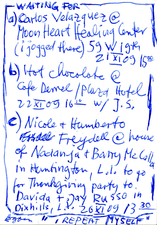 WAITING FOR
a) Carlos Velazquez @
Moon Heart Healing Center
(i jogged there) 59 W 19th
21 XI 09 15
b) Hot Chocolate @
Cafe Dansel / Plaza Hotel
21 XI 09 16 w/ J.S.
c) Nicole & Humberto
Freydell @ house
of Nadanja & Barry McCall
in Huntington, L.I. to go
for Thanksgiving party to
Davida + Jay Russo in
Dixhills, L.I. 26 XI 09 / 3 30
"I REPEAT MYSELF"